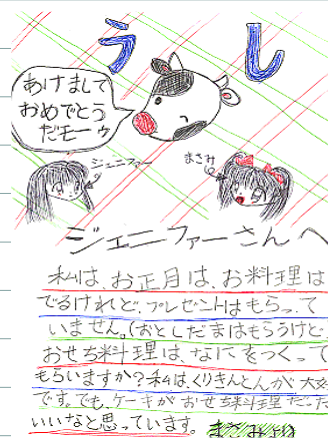 うし
あけまして
おめでとう
だモーゥ
ジェニファー
まさみ
ジェニファーさんへ
私は、お正月は、お料理は
でるけれど、プレゼントはもらって
いません。(おとしだまはもらうけど
おせち料理は、なにをつくって
もらいますか?私はくりきんとんが大好
です。でも、ケーキがおせち料理だった
いいなと思っています。まさみより